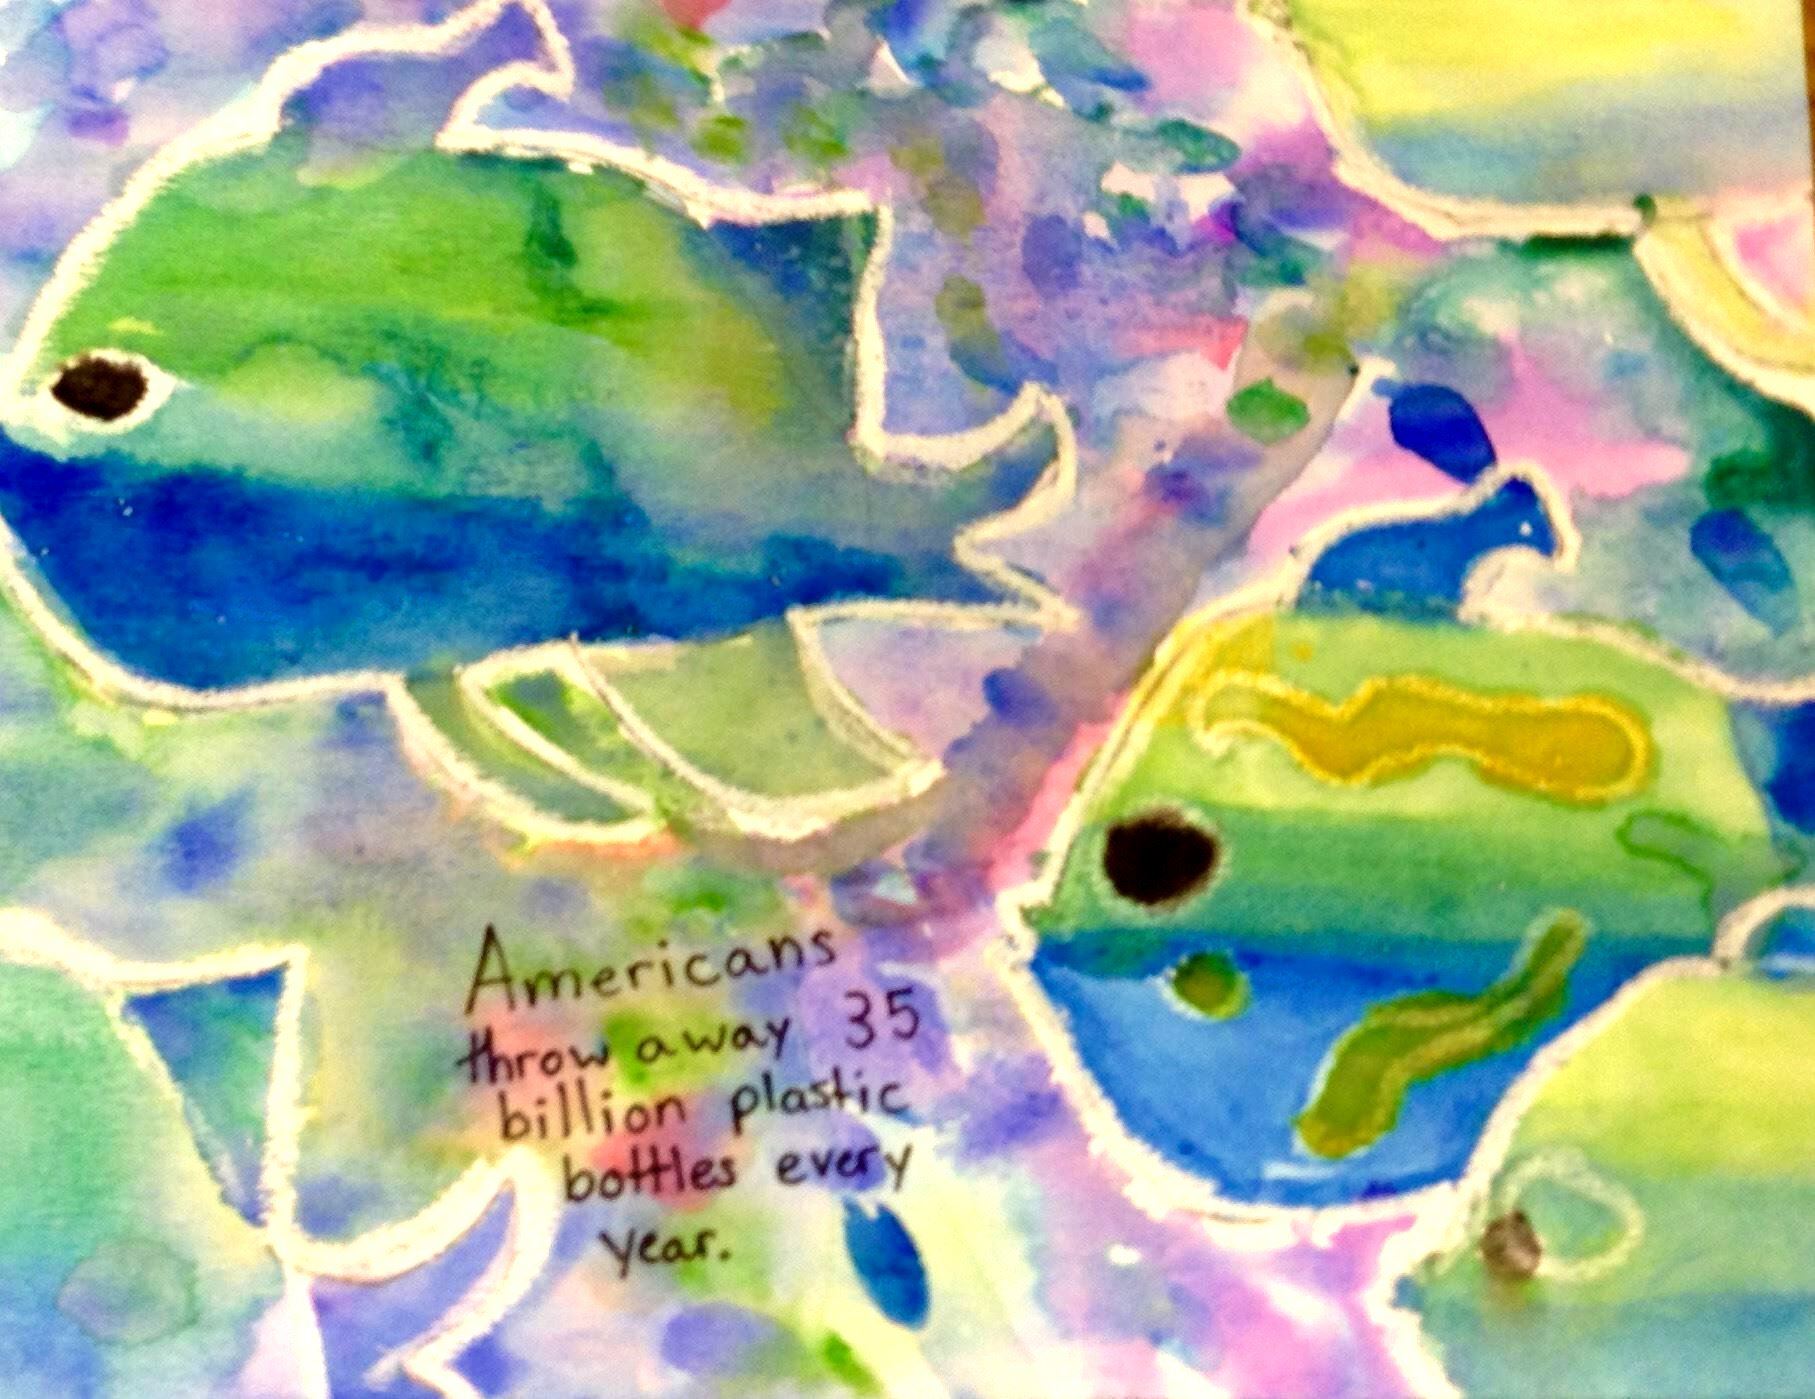 Americans
throw away 35
billion plastic
bottles every
year.